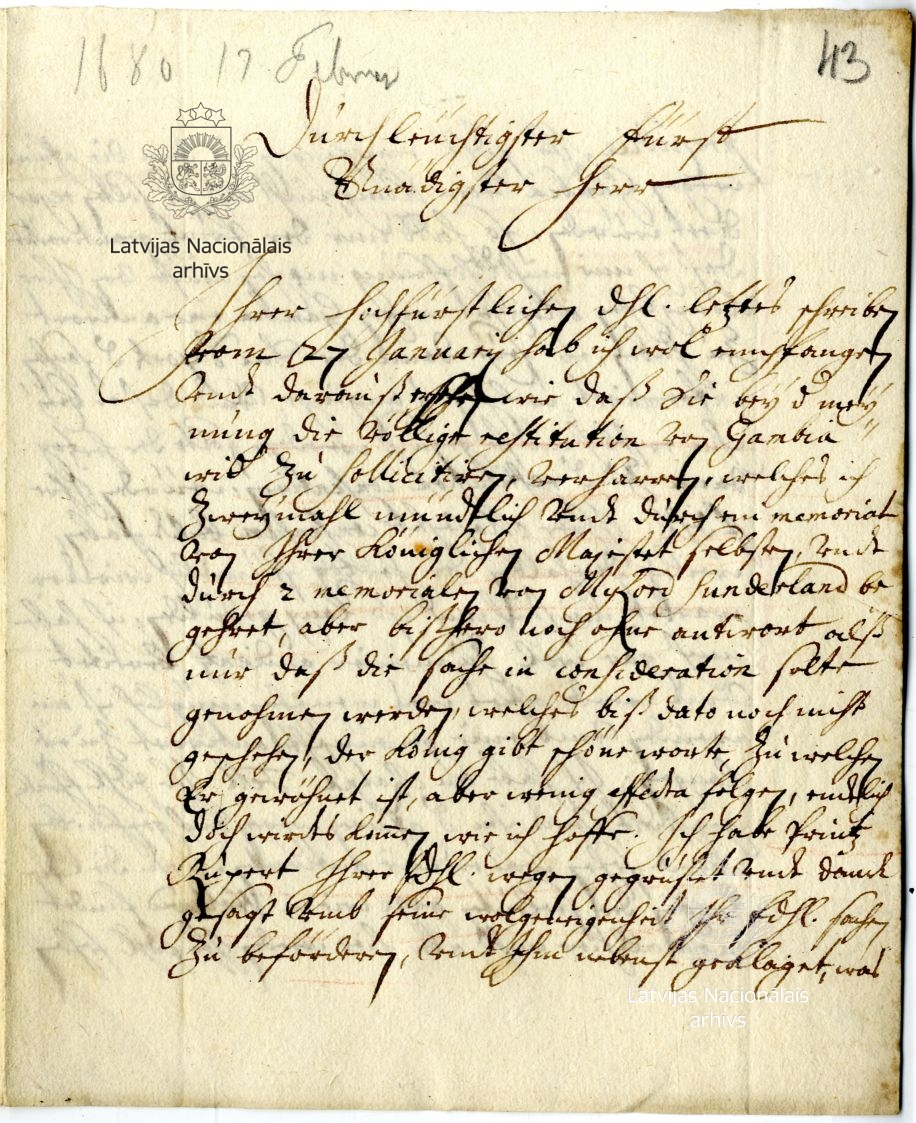 1680 17 Febru
43
Durchleüchtigster Fürst
Gnädigster Herr
Latvijas Nacionālais
arhīvs
Ihrer Hochfürstlichen Dhl. letztes schreiben
vom 27 Januarij hab ich wol empfangen
undt darauß ersehen wie daß Sie bey d mey
nung die völlige restitution von Gambia
will zu sollicitiren, verharren, welches ich
zweymahl mündtlich undt durch ein memorial
von Ihrer Königlichen Majestet selbsten, undt
durch 2 memorialen von Mylord Sunderland be
gehret, aber bißhero noch ohne antwort alß
nur daß die sache in consideration solte
genohmen werden, welches biß dato noch nicht
geschehen, der König gibt schöne worte, zu welchen
Er gewöhnet ist, aber wenig effecta folgen, endtlich
doch wirdts kommen wie ich hoffe. Ich habe Printz
Rupert Ihrer fdhl. wegen gegrüßet undt danck
gesagt umb seine wolgeneigenheit Ihr fdhl. sachen
zu beförderen, undt Ihm nebenst geklaget, was
Latvijas Nacionālais
arhīvs